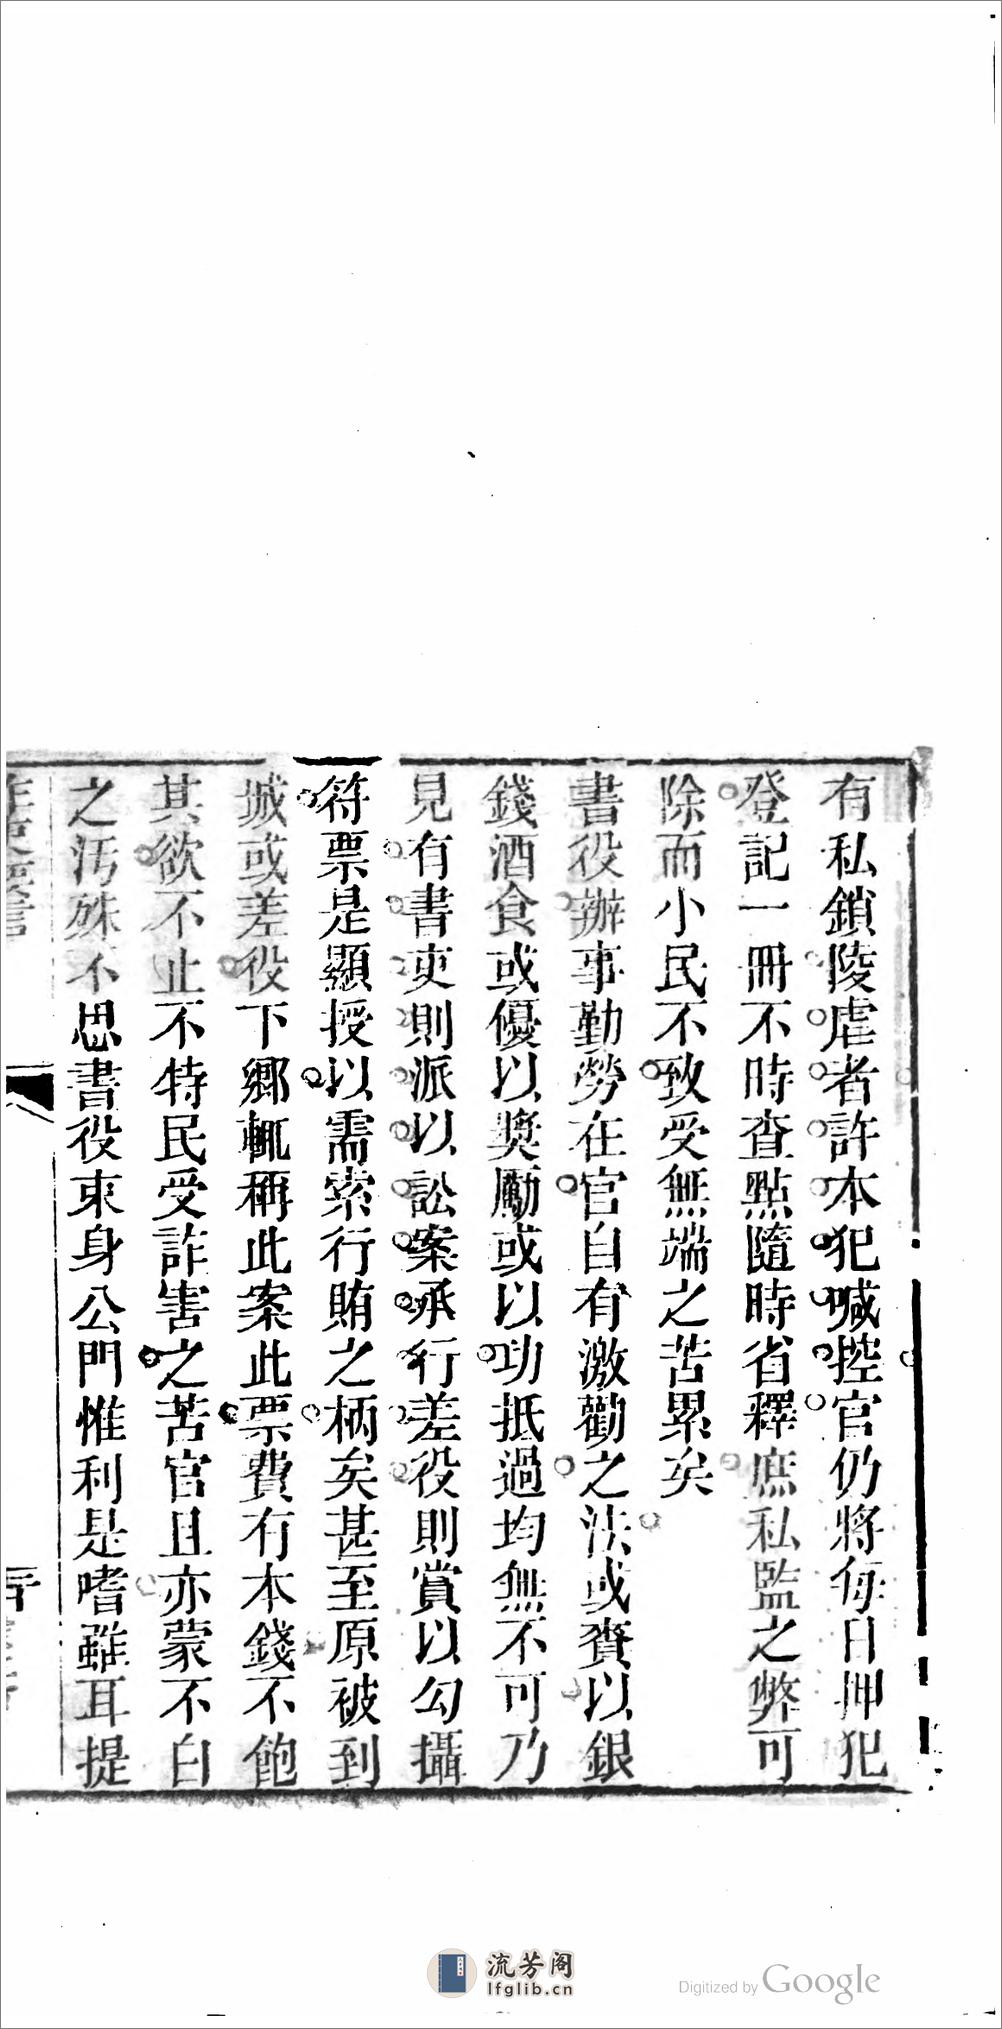 有私鎖陵虐者許本犯喊控官仍將每日押犯
登記一冊不時查點隨時省釋庶私監之弊可
除而小民不致受無端之苦累矣
書役辦事勤勞在官自有激勸之法或賚以銀
錢酒食或優以獎勵或以功抵過均無不可乃
見有書吏則派以訟案承行差役則賞以勾攝
符票是顯授以需索行賄之柄矣甚至原被到
城或差役下鄉輒稱此案此票費有本錢不飽
其欲不止不特民受詐害之苦官且亦蒙不白
之汚殊不思書役束身公門惟利是嗜雖耳提
流芳阁
lfglib.cn
Digitized by Google